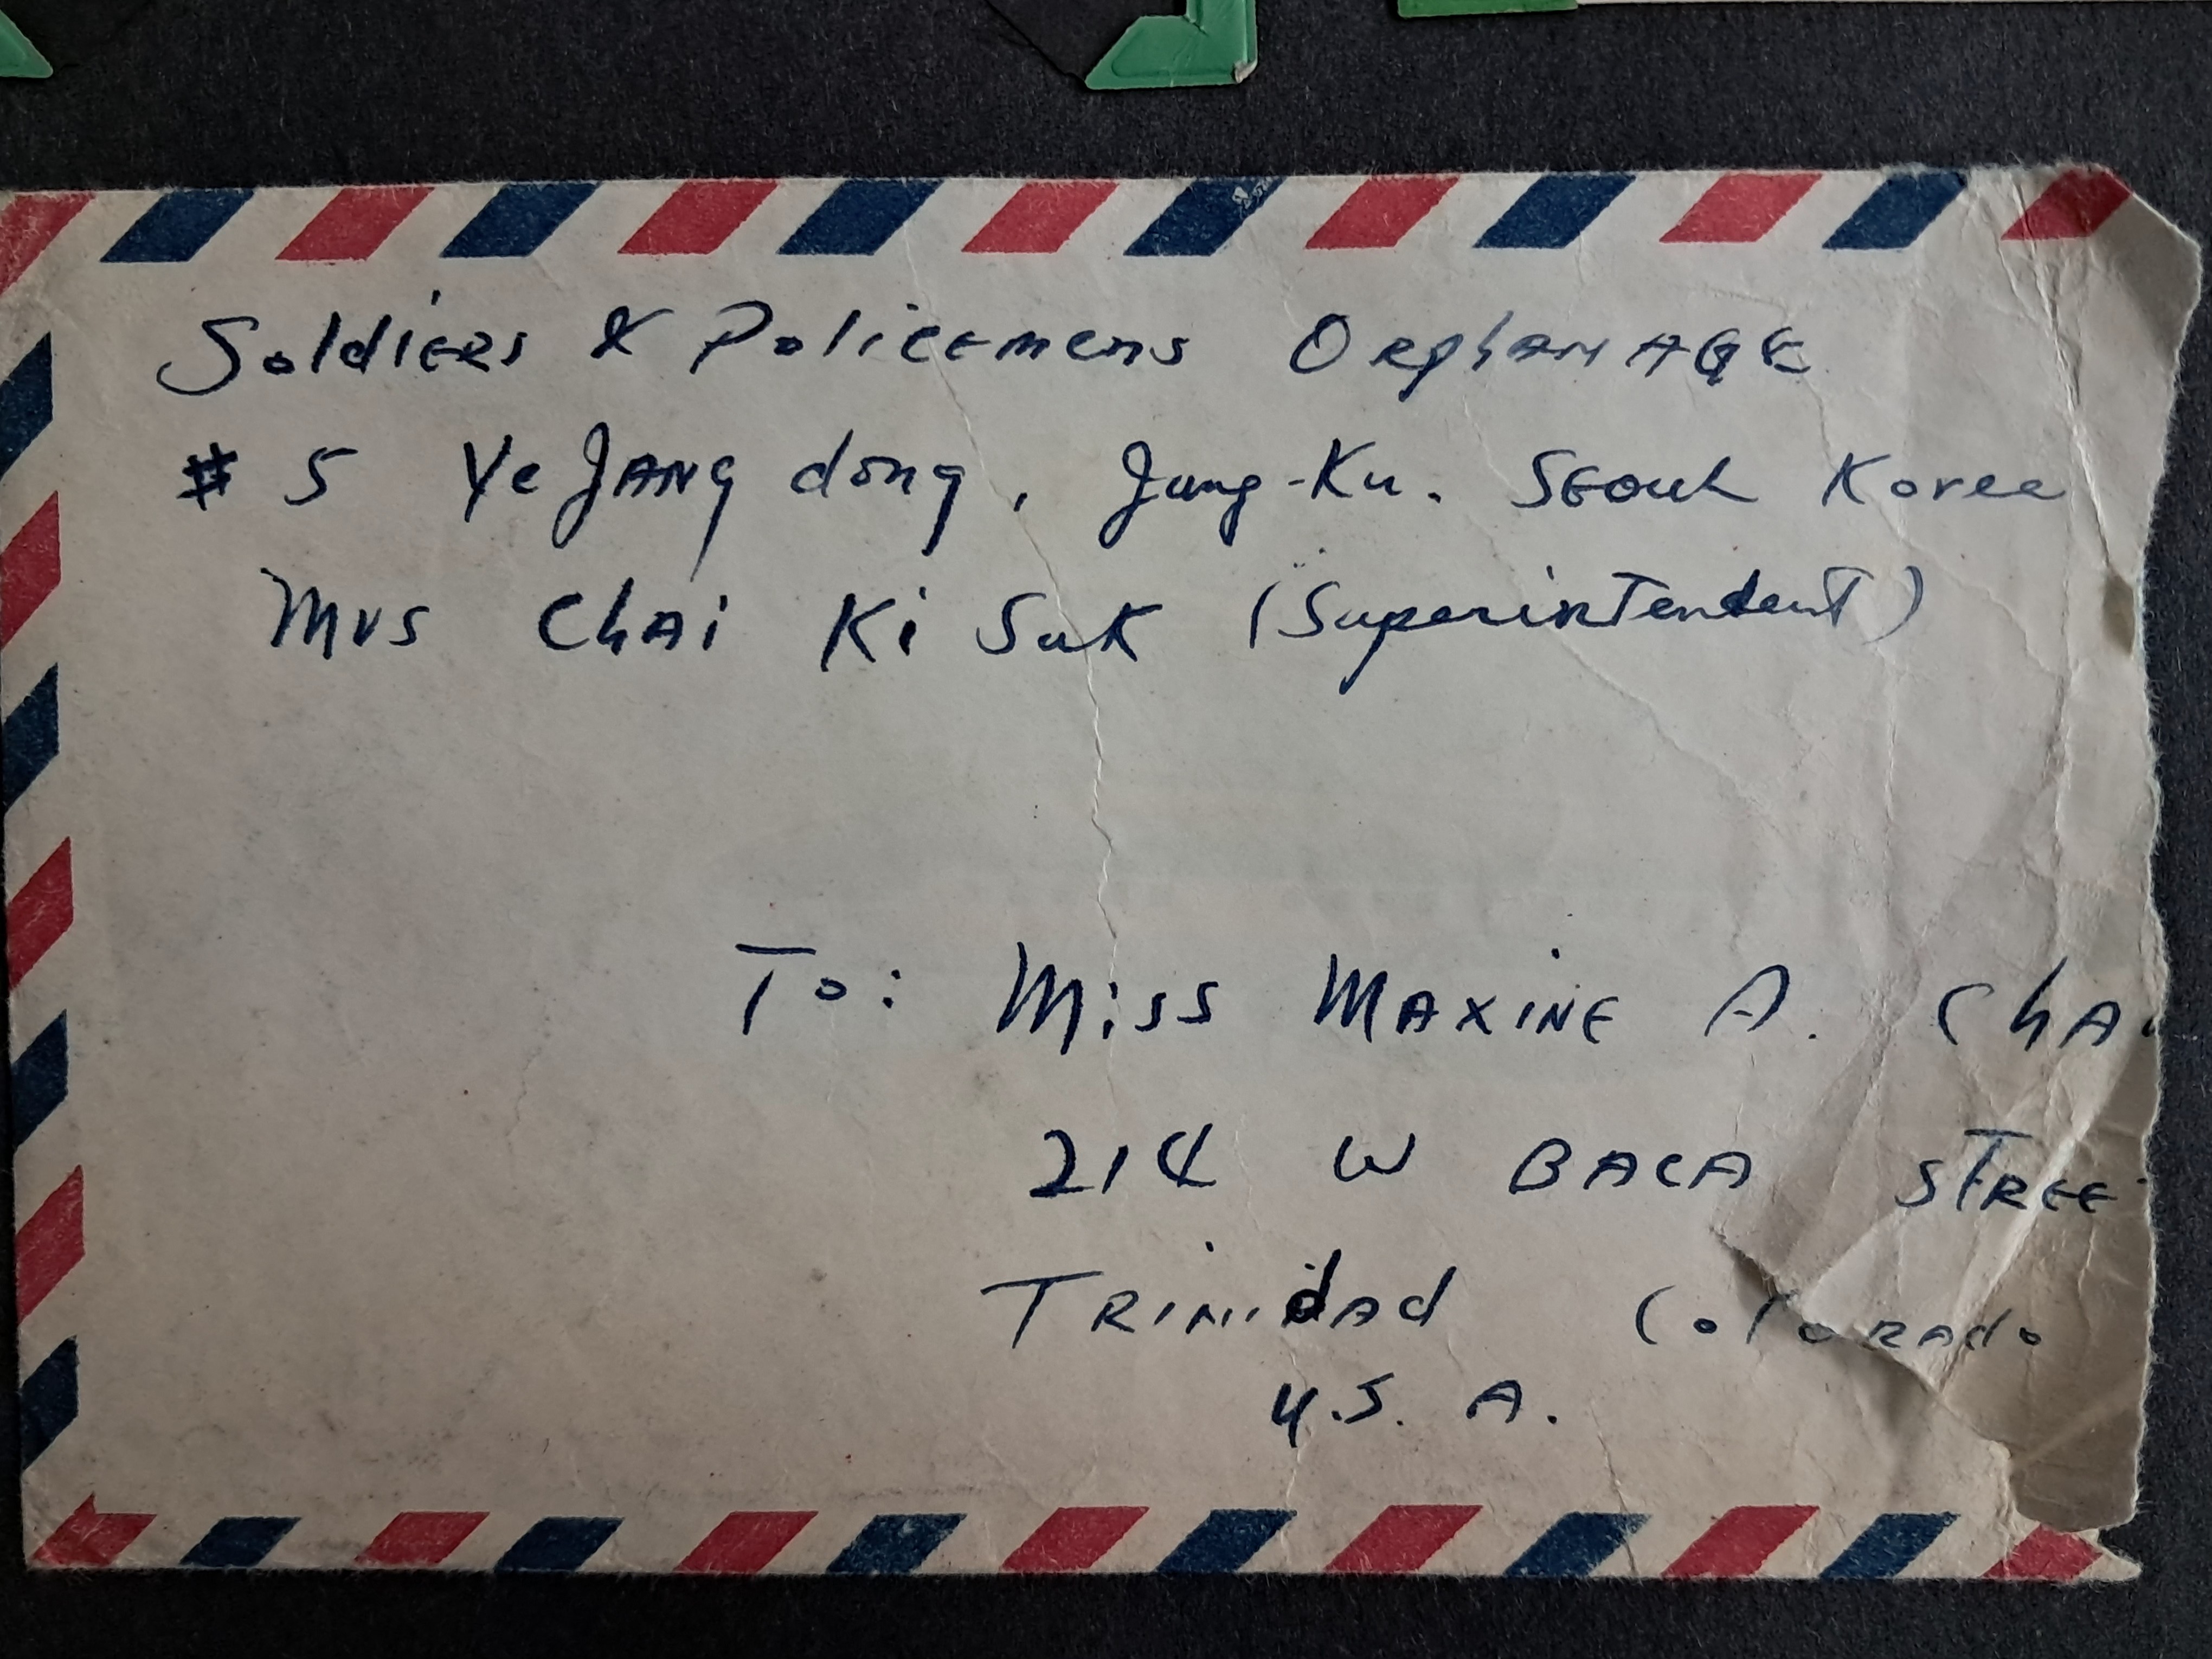 Soldiers & Policemens Orphanage
# 5 Ye Jang dong, Jung-Ku. Seoul Korea
Mrs Chai Ki Suk (Superintendent)
To: Miss Maxine A.
214 W Baca Stree
Trinidad Colorado
U.S. A.